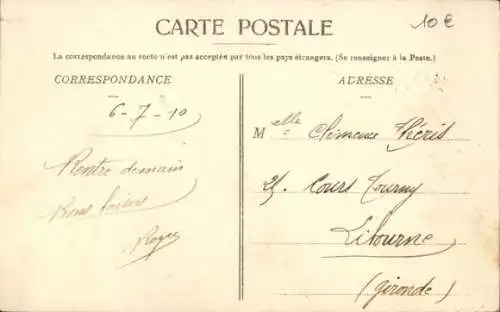 10 €
CARTE POSTALE
La correspondance au recto n'est pas acceptée par tous les pays étrangers. (Se renseigner à la Poste.)
CORRESPONDANCE
6-7-10
Rentre demain
Bons baisers
Roger
ADRESSE
Melle Clémence
25. Cours Tourny
Libourne
(Gironde)